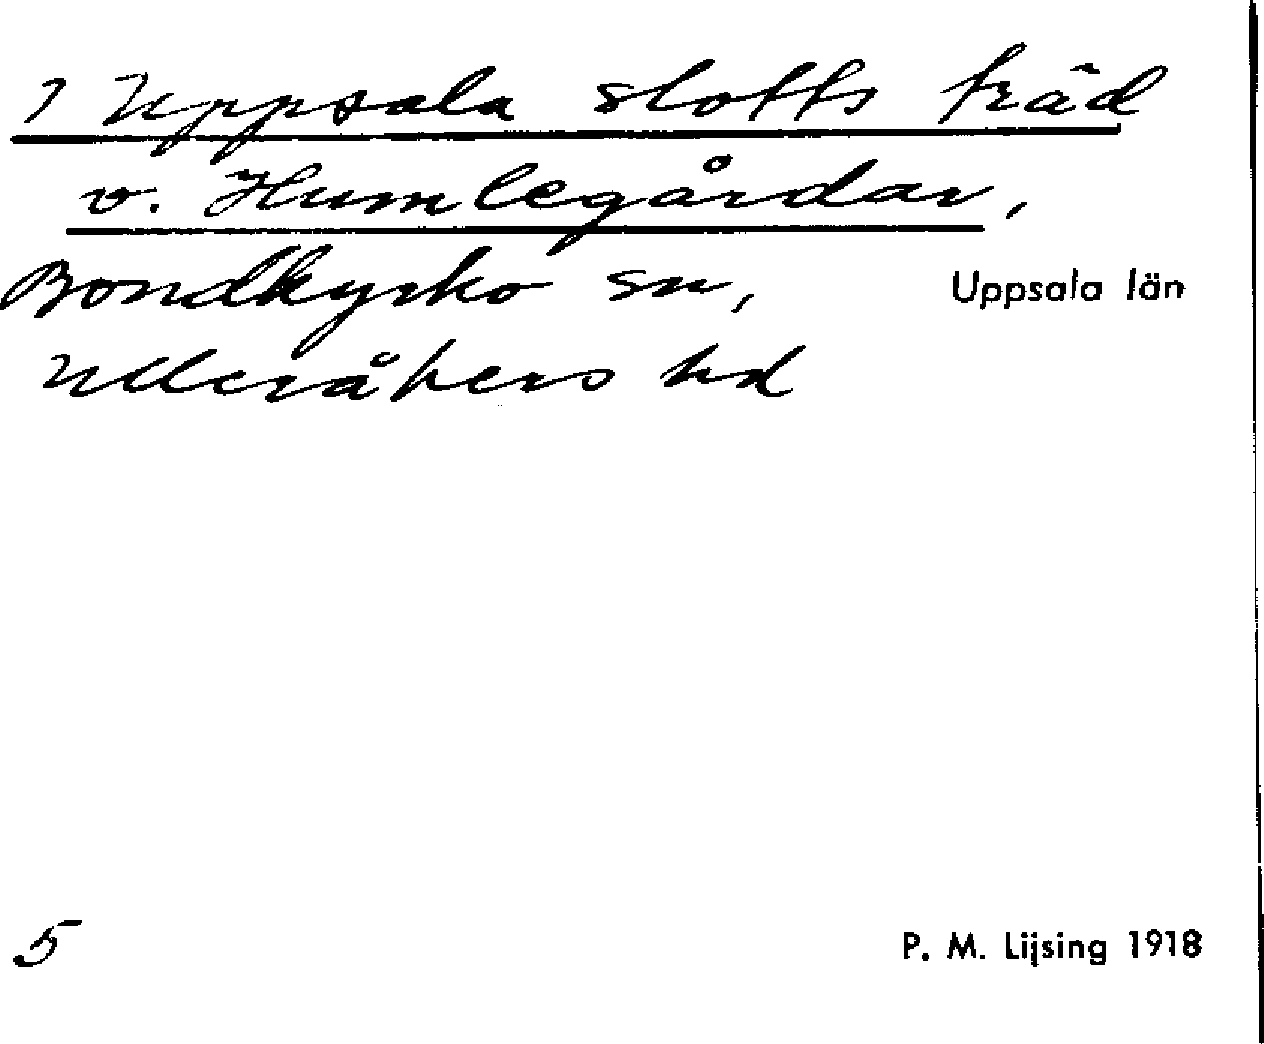 1 Uppsala slotts träd
v. Humlegårdar,
Bondkyrko sn, Uppsala län
Ulleråkers hd
5
P. M. Lijsing 1918